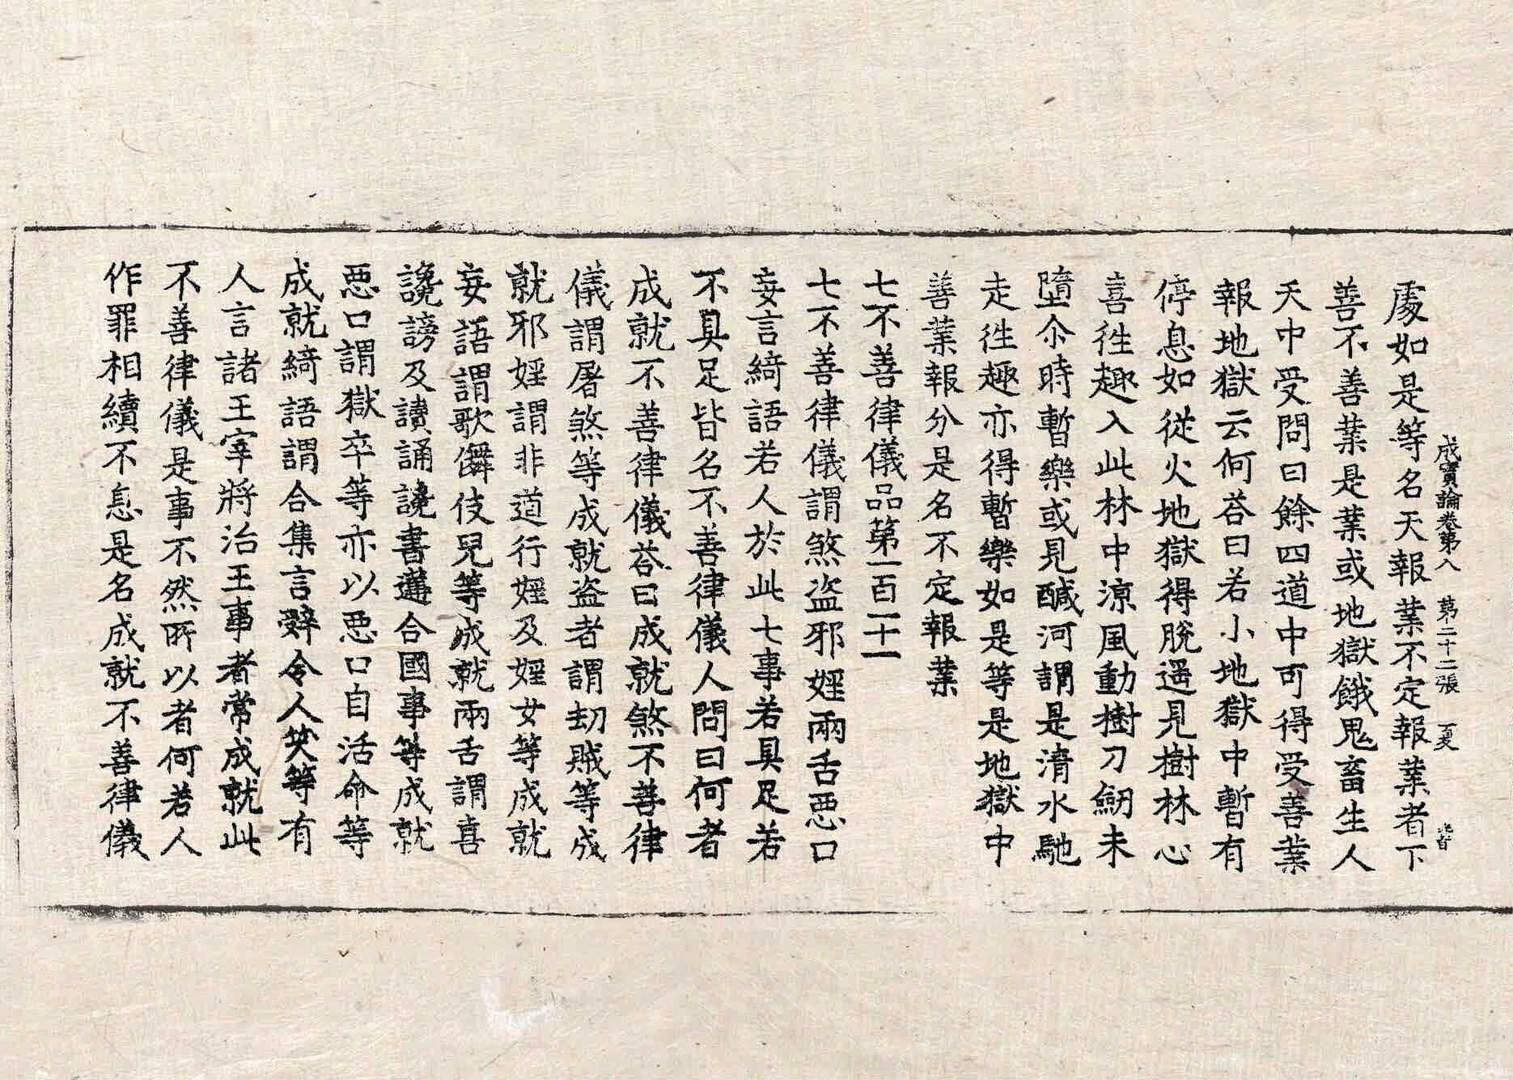 成實論卷第八 第二十二張 夏
處如是等名天報業不定報業者下
善不善業是業或地獄餓鬼畜生人
天中受問曰餘四道中可得受善業
報地獄云何荅曰若小地獄中暫有
停息如從火地獄得脫遥見樹林心
喜徃趣入此林中涼風動樹刀劒未
墮尒時暫樂或見醎河謂是清水馳
走徃趣亦得暫樂如是等是地獄中
善業報分是名不定報業
七不善律儀品第一百二十一
七不善律儀謂煞盜邪婬兩舌惡口
妄言綺語若人於此七事若具足若
不具足皆名不善律儀人問曰何者
成就不善律儀荅曰成就煞不善律
儀謂屠煞等成就盜者謂劫賊等成
就邪婬謂非道行婬及婬女等成就
妄語謂歌儛伎兒等成就兩舌謂喜
讒謗及讀誦讒書遘合國事等成就
惡口謂獄卒等亦以惡口自活命等
成就綺語謂合集言辤令人笑等有
人言諸王宰將治王事者常成就此
不善律儀是事不然所以者何若人
作罪相續不息是名成就不善律儀